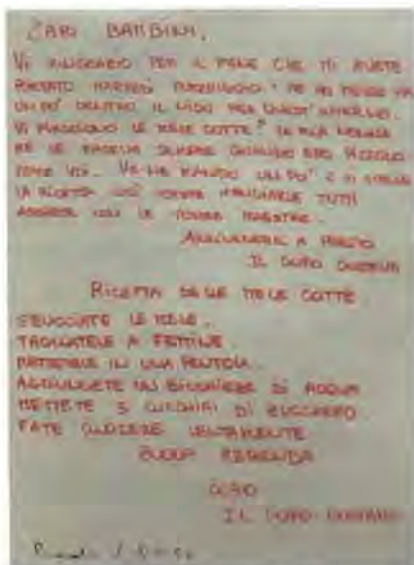 CARI BAMBINI,
VI RINGRAZIO PER IL MELE CHE MI AVETE
PORTATO MARTEDÌ POMERIGGIO. NE HO MESSE
UN PO' DENTRO IL NIDO PER QUEST'INVERNO.
VI PIACCIONO LE MELE COTTE? LA MIA NONNA
ME LE FACEVA SEMPRE QUANDO ERO PICCOLO
COME VOI. VE NE MANDO UN PO' E VI
LA RICETTA COSÌ POTETE MANGIARLE TUTTI
ASSIEME CON LE VOSTRE MAESTRE.
ARRIVEDERCI A PRESTO
IL GUFO
RICETTA DELLE MELE COTTE
SBUCCIATE LE MELE.
TAGLIATELE A FETTINE.
METTETELE IN UNA PENTOLA.
AGGIUNGETE UN BICCHIERE DI ACQUA
METTETE 3 CUCCHIAI DI ZUCCHERO
FATE CUOCERE LENTAMENTE
BUONA MERENDA
CIAO
IL GUFO